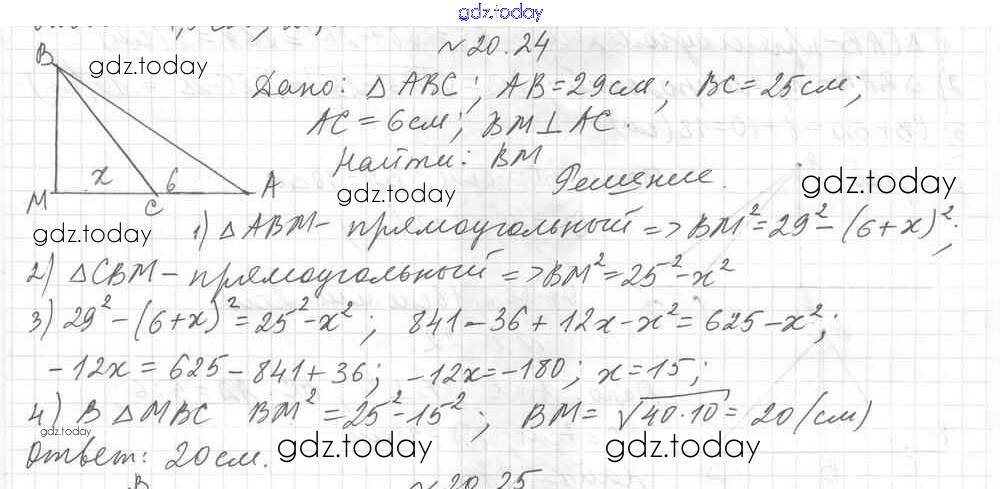 gdz.today
N 20.24
B
gdz.today
Дано: △ABC; AB=29см; BC=25см;
AC=6см; BM⊥AC
Найти: BM
x 6
M C A
gdz.today
Решение.
gdz.today
gdz.today
1) △ABM - прямоугольный => BM²=29²-(6+x)²;
2) △CBM - прямоугольный => BM²=25²-x²
3) 29²-(6+x)²=25²-x²; 841-36+12x-x²=625-x²;
-12x=625-841+36; -12x=-180; x=15;
4) В △MBC BM²=25²-15²; BM=√40·10=20(см)
gdz.today
Ответ: 20см.
gdz.today
gdz.today
B N 20.25